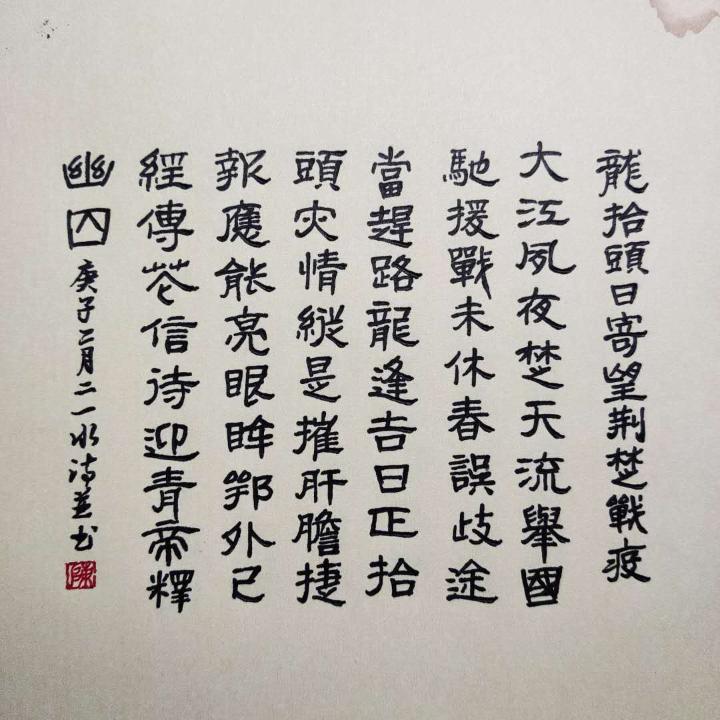 龍抬頭日寄望荆楚戰疫
大江夙夜楚天流舉國
馳援戰未休春誤歧途
當趕路龍逢吉日正抬
頭灾情縱是摧肝膽捷
報應能亮眼眸鄂外已
經傳芲信待迎青帝釋
幽囚
庚子二月二一水诗並书
陳